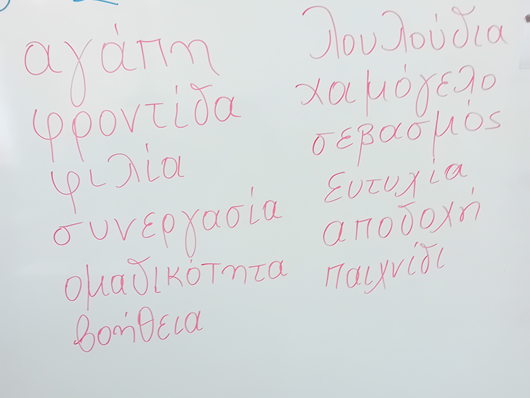 αγάπη
φροντίδα
φιλία
συνεργασία
ομαδικότητα
βοήθεια
λουλούδια
χαμόγελο
σεβασμός
ευτυχία
αποδοχή
παιχνίδι